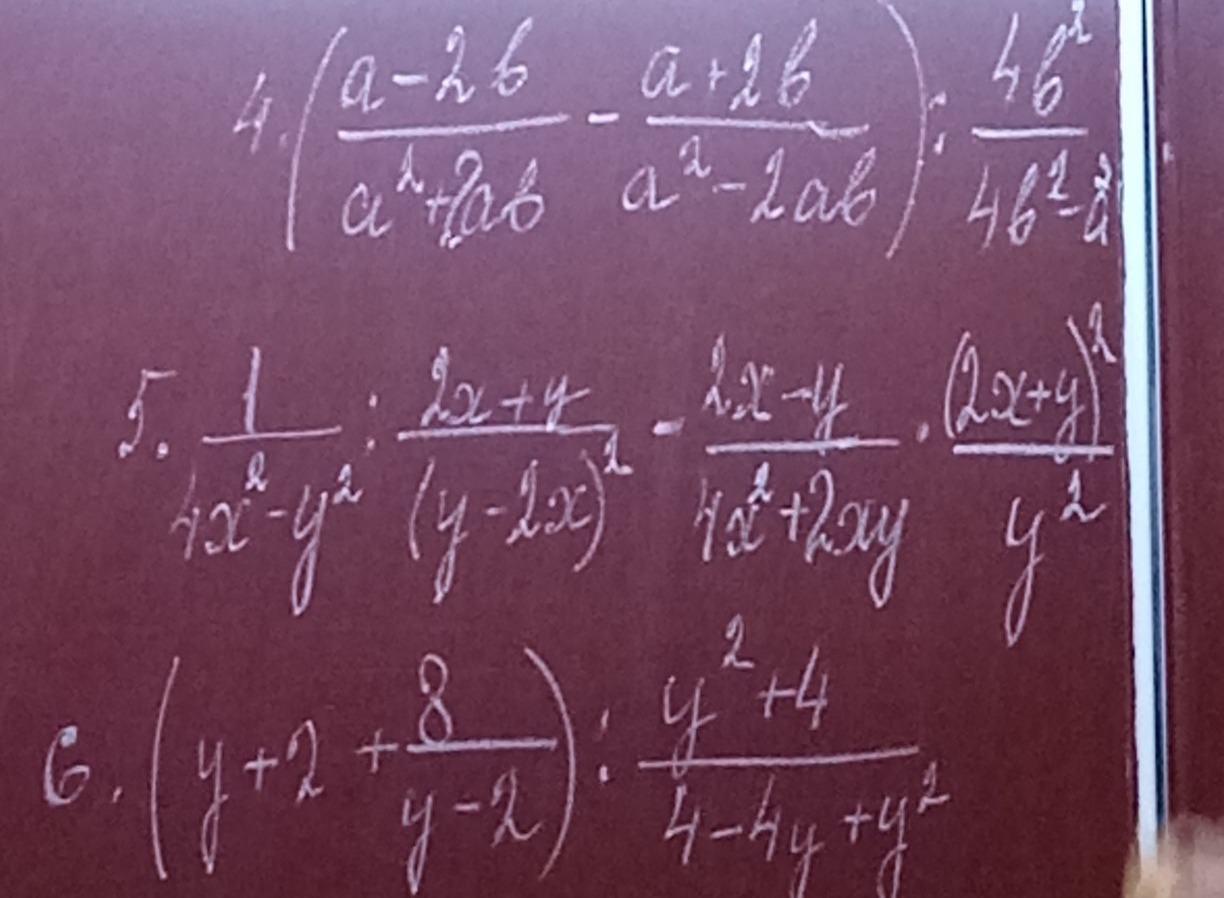 4. (\frac{a-2b}{a^2+2ab} - \frac{a+2b}{a^2-2ab}) : \frac{4b^2}{4b^2-a^2}
5. \frac{1}{4x^2-y^2} : \frac{2x+y}{(y-2x)^2} - \frac{2x-y}{4x^2+2xy} \cdot \frac{(2x+y)^2}{y^2}
6. (y+2+\frac{8}{y-2}) : \frac{y^2+4}{4-4y+y^2}